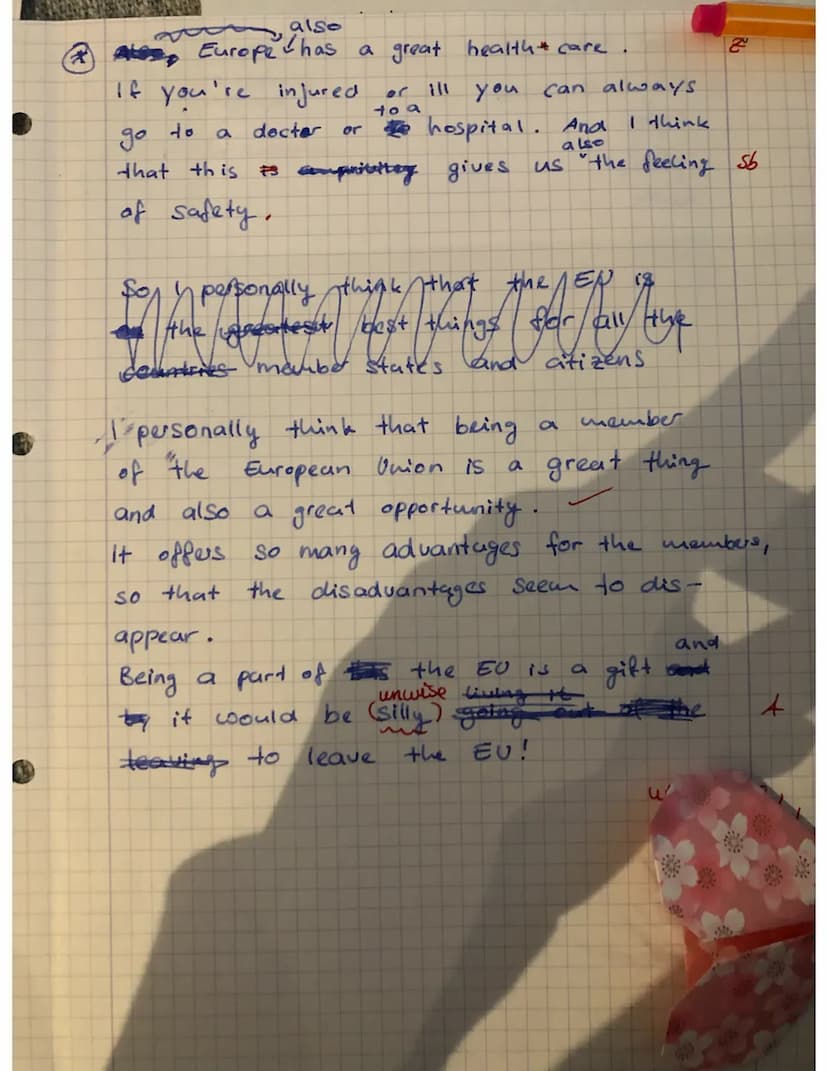 also
Europe has a great health care.
If you're injured or ill you can always
to a
go to a doctor or hospital. And I think
also
that this is gives us the feeling sb
of safety.
So I personally think that the EU is
the greatest best things for all the
countries member states and citizens
I personally think that being a member
of the European Union is a great thing
and also a great opportunity.
It offers so many advantages for the members,
so that the disadvantages seem to dis-
appear.
and
Being a part of the EU is a gift and
unwise living it
it would be (silly) going out of the A
leaving to leave the EU!